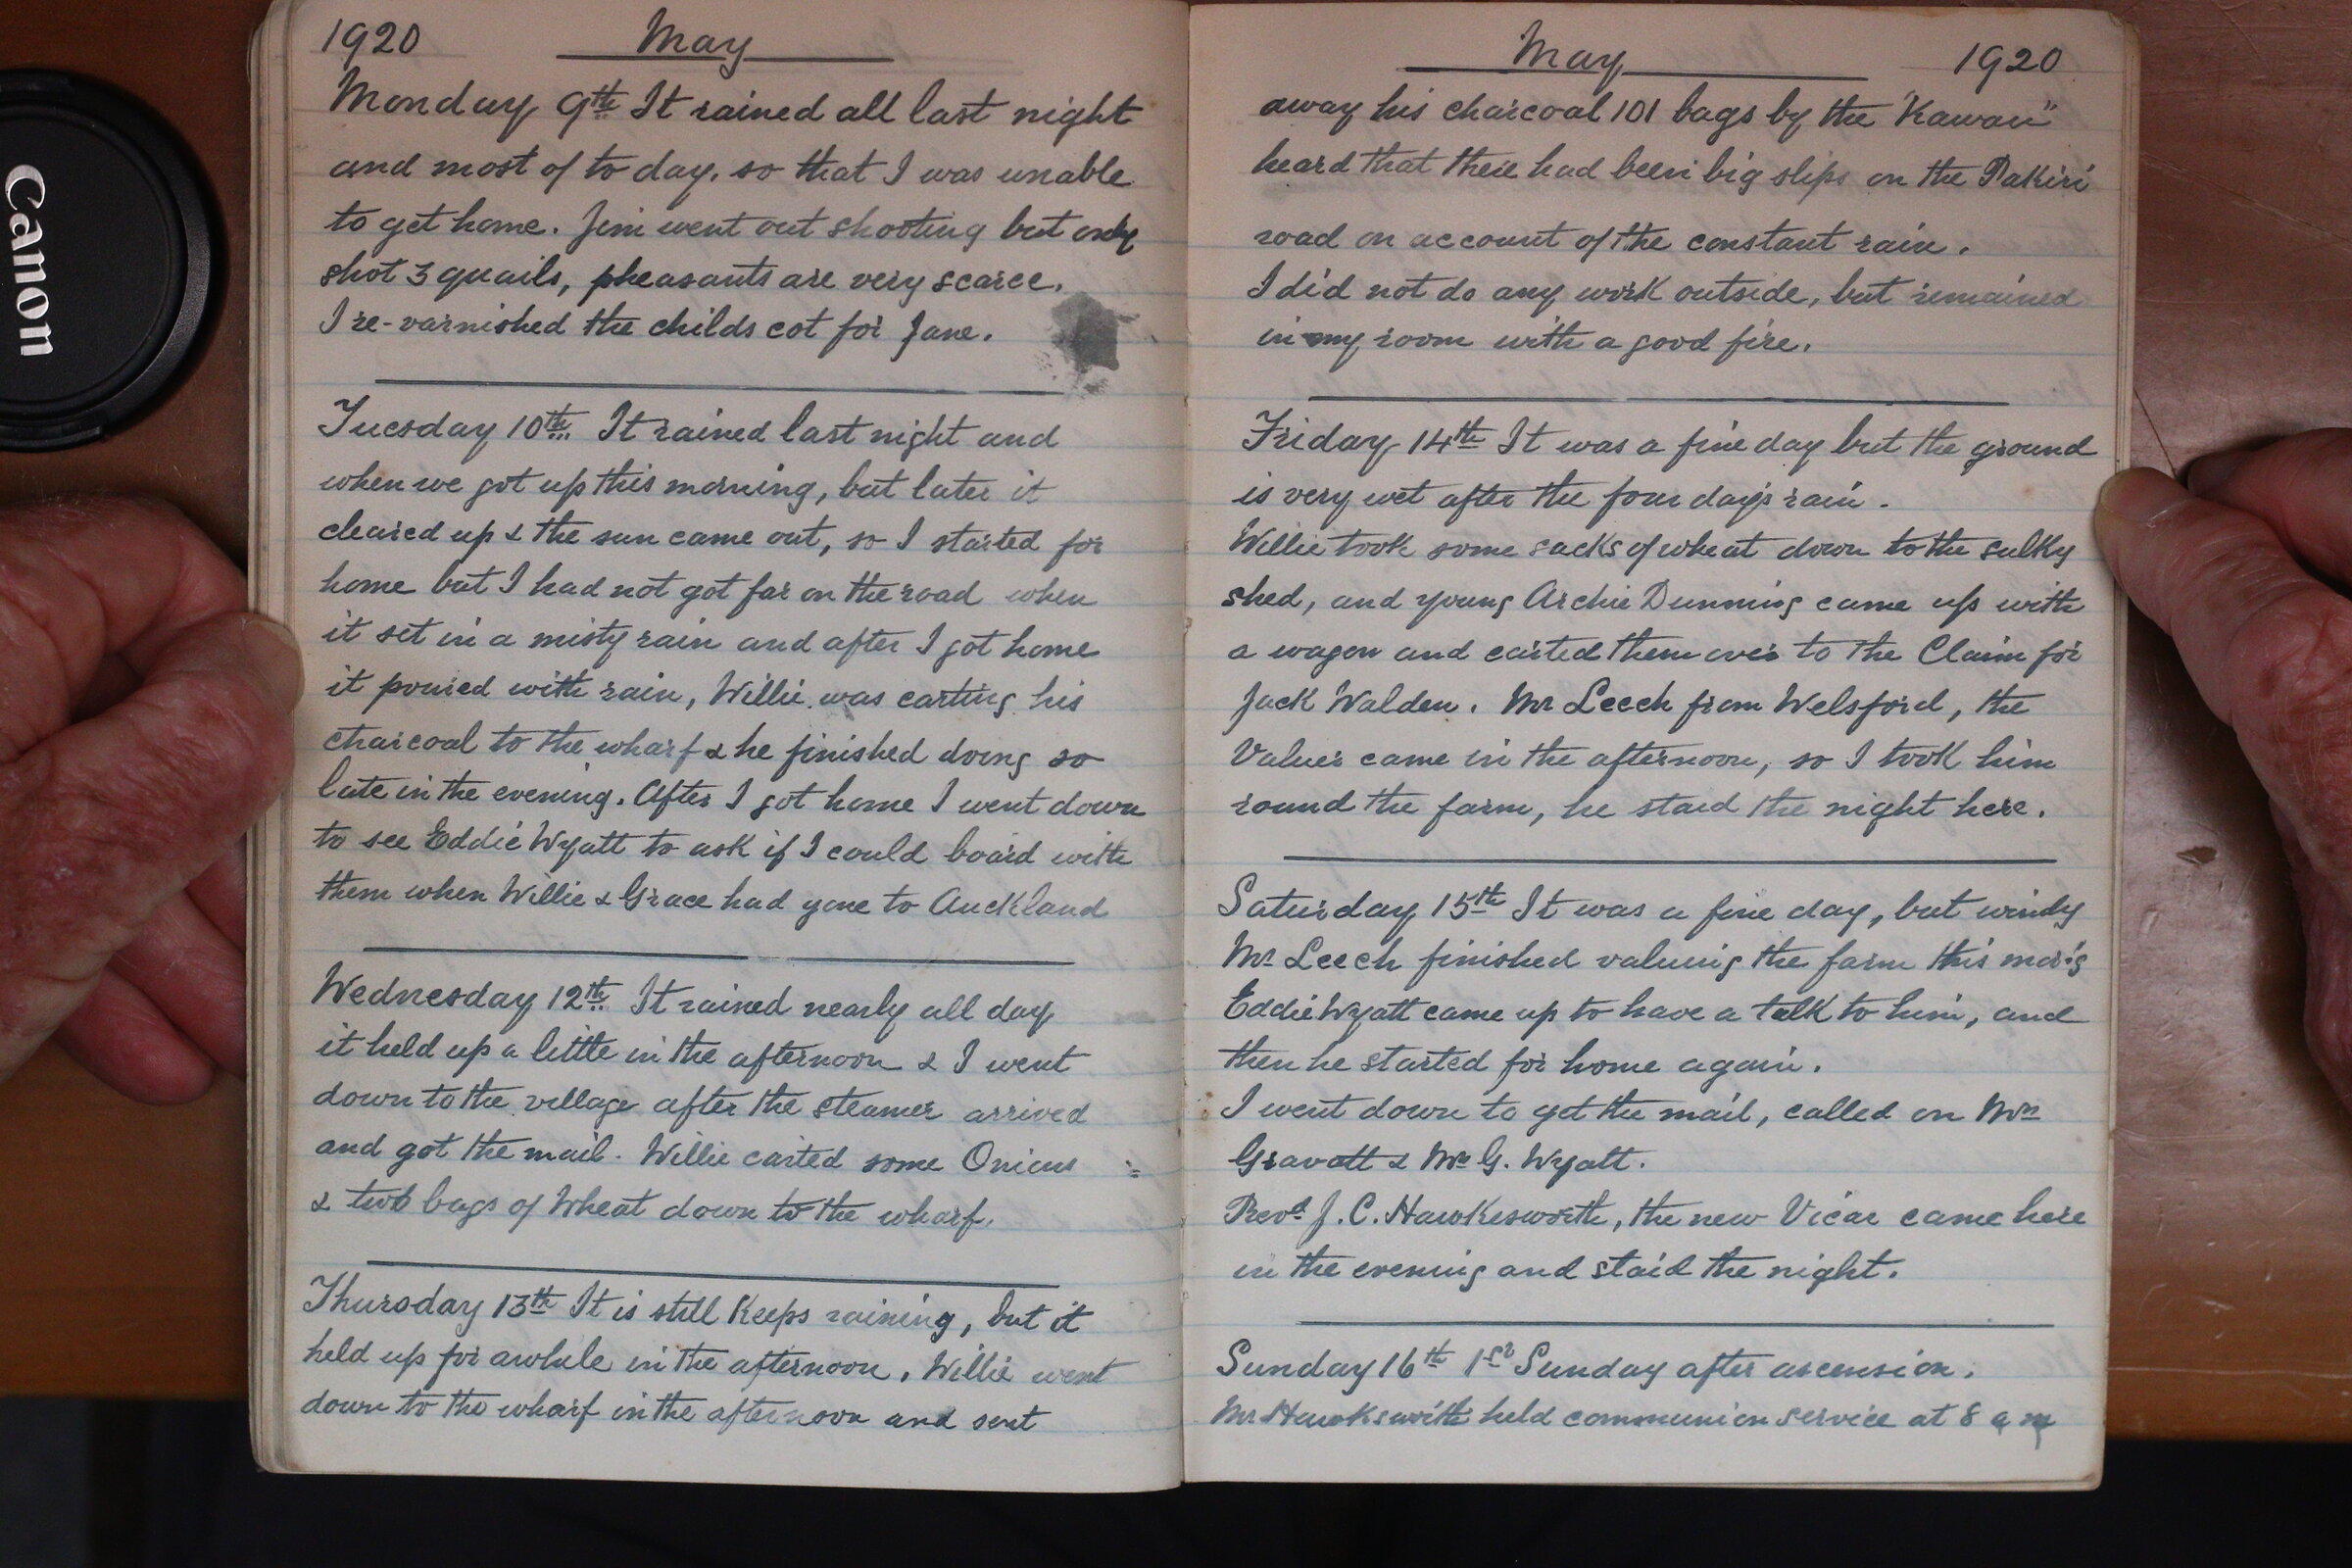 Canon
1920 May
Monday 9th It rained all last night
and most of to day, so that I was unable
to get home. Jim went out shooting but only
shot 3 quails, pheasants are very scarce.
I re-varnished the childs cot for Jane.
Tuesday 10th It rained last night and
when we got up this morning, but later it
cleared up & the sun came out, so I started for
home but I had not got far on the road when
it set in a misty rain and after I got home
it poured with rain, Willie was carting his
charcoal to the wharf & he finished doing so
late in the evening. After I got home I went down
to see Eddie Wyatt to ask if I could board with
them when Willie & Grace had gone to Auckland
Wednesday 12th It rained nearly all day
it held up a little in the afternoon & I went
down to the village after the steamer arrived
and got the mail. Willie carted some Onions
& two bags of Wheat down to the wharf.
Thursday 13th It is still keeps raining, but it
held up for awhile in the afternoon. Willie went
down to the wharf in the afternoon and sent
May 1920
away his charcoal 101 bags by the "Kawau"
heard that there had been big slips on the Pakiri
road on account of the constant rain.
I did not do any work outside, but remained
in my room with a good fire.
Friday 14th It was a fine day but the ground
is very wet after the four day's rain.
Willie took some sacks of wheat down to the sulky
shed, and young Archie Dunning came up with
a wagon and carted them over to the Claim for
Jack Walden. Mr Leech from Welsford, the
Valuer came in the afternoon, so I took him
round the farm, he staid the night here.
Saturday 15th It was a fine day, but windy
Mr Leech finished valuing the farm this mor'g
Eddie Wyatt came up to have a talk to him, and
then he started for home again.
I went down to get the mail, called on Mrs
Gravatt & Mrs G. Wyatt.
Revd J. C. Hawkesworth, the new Vicar came here
in the evening and staid the night.
Sunday 16th 1st Sunday after ascension.
Mr Hawksworth held communion service at 8 a m